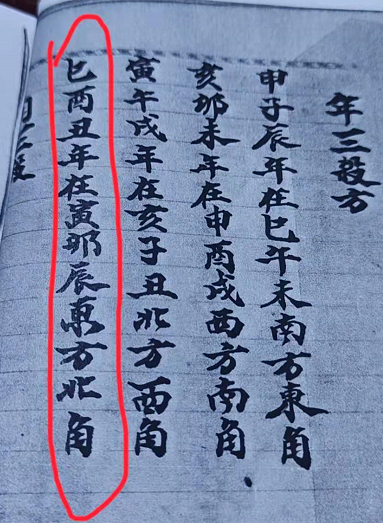 年三殺方
甲子辰年在巳午未南方東角
亥卯未年在申酉戌西方南角
寅午戌年在亥子丑北方西角
巳酉丑年在寅卯辰東方北角